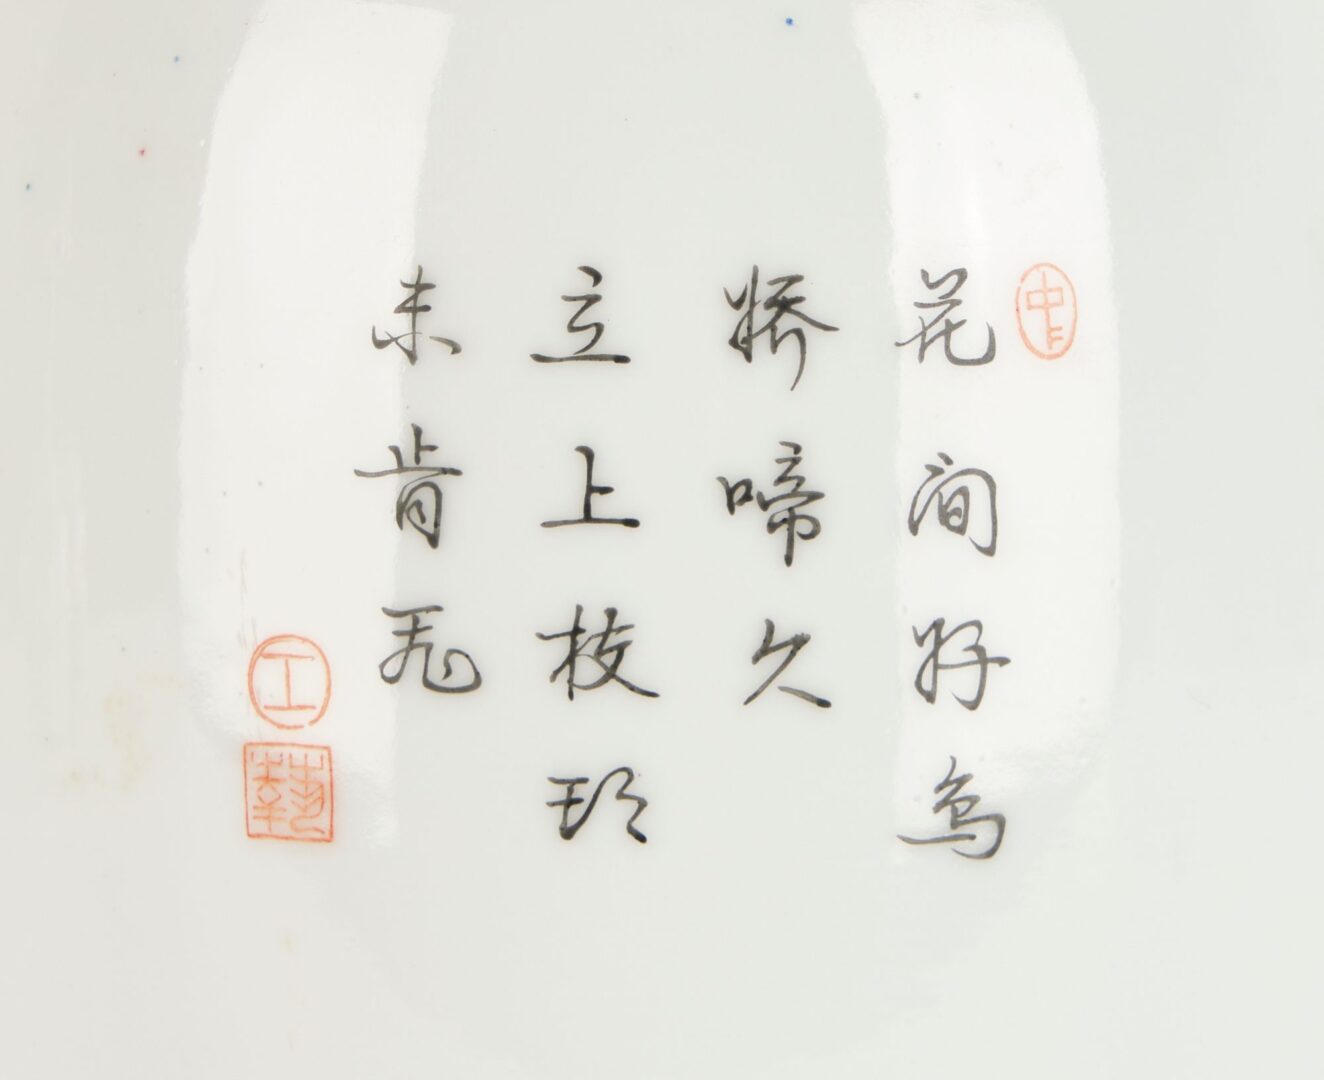 花间好鸟
娇啼久
立上枝玑
未肯飛
工
藝